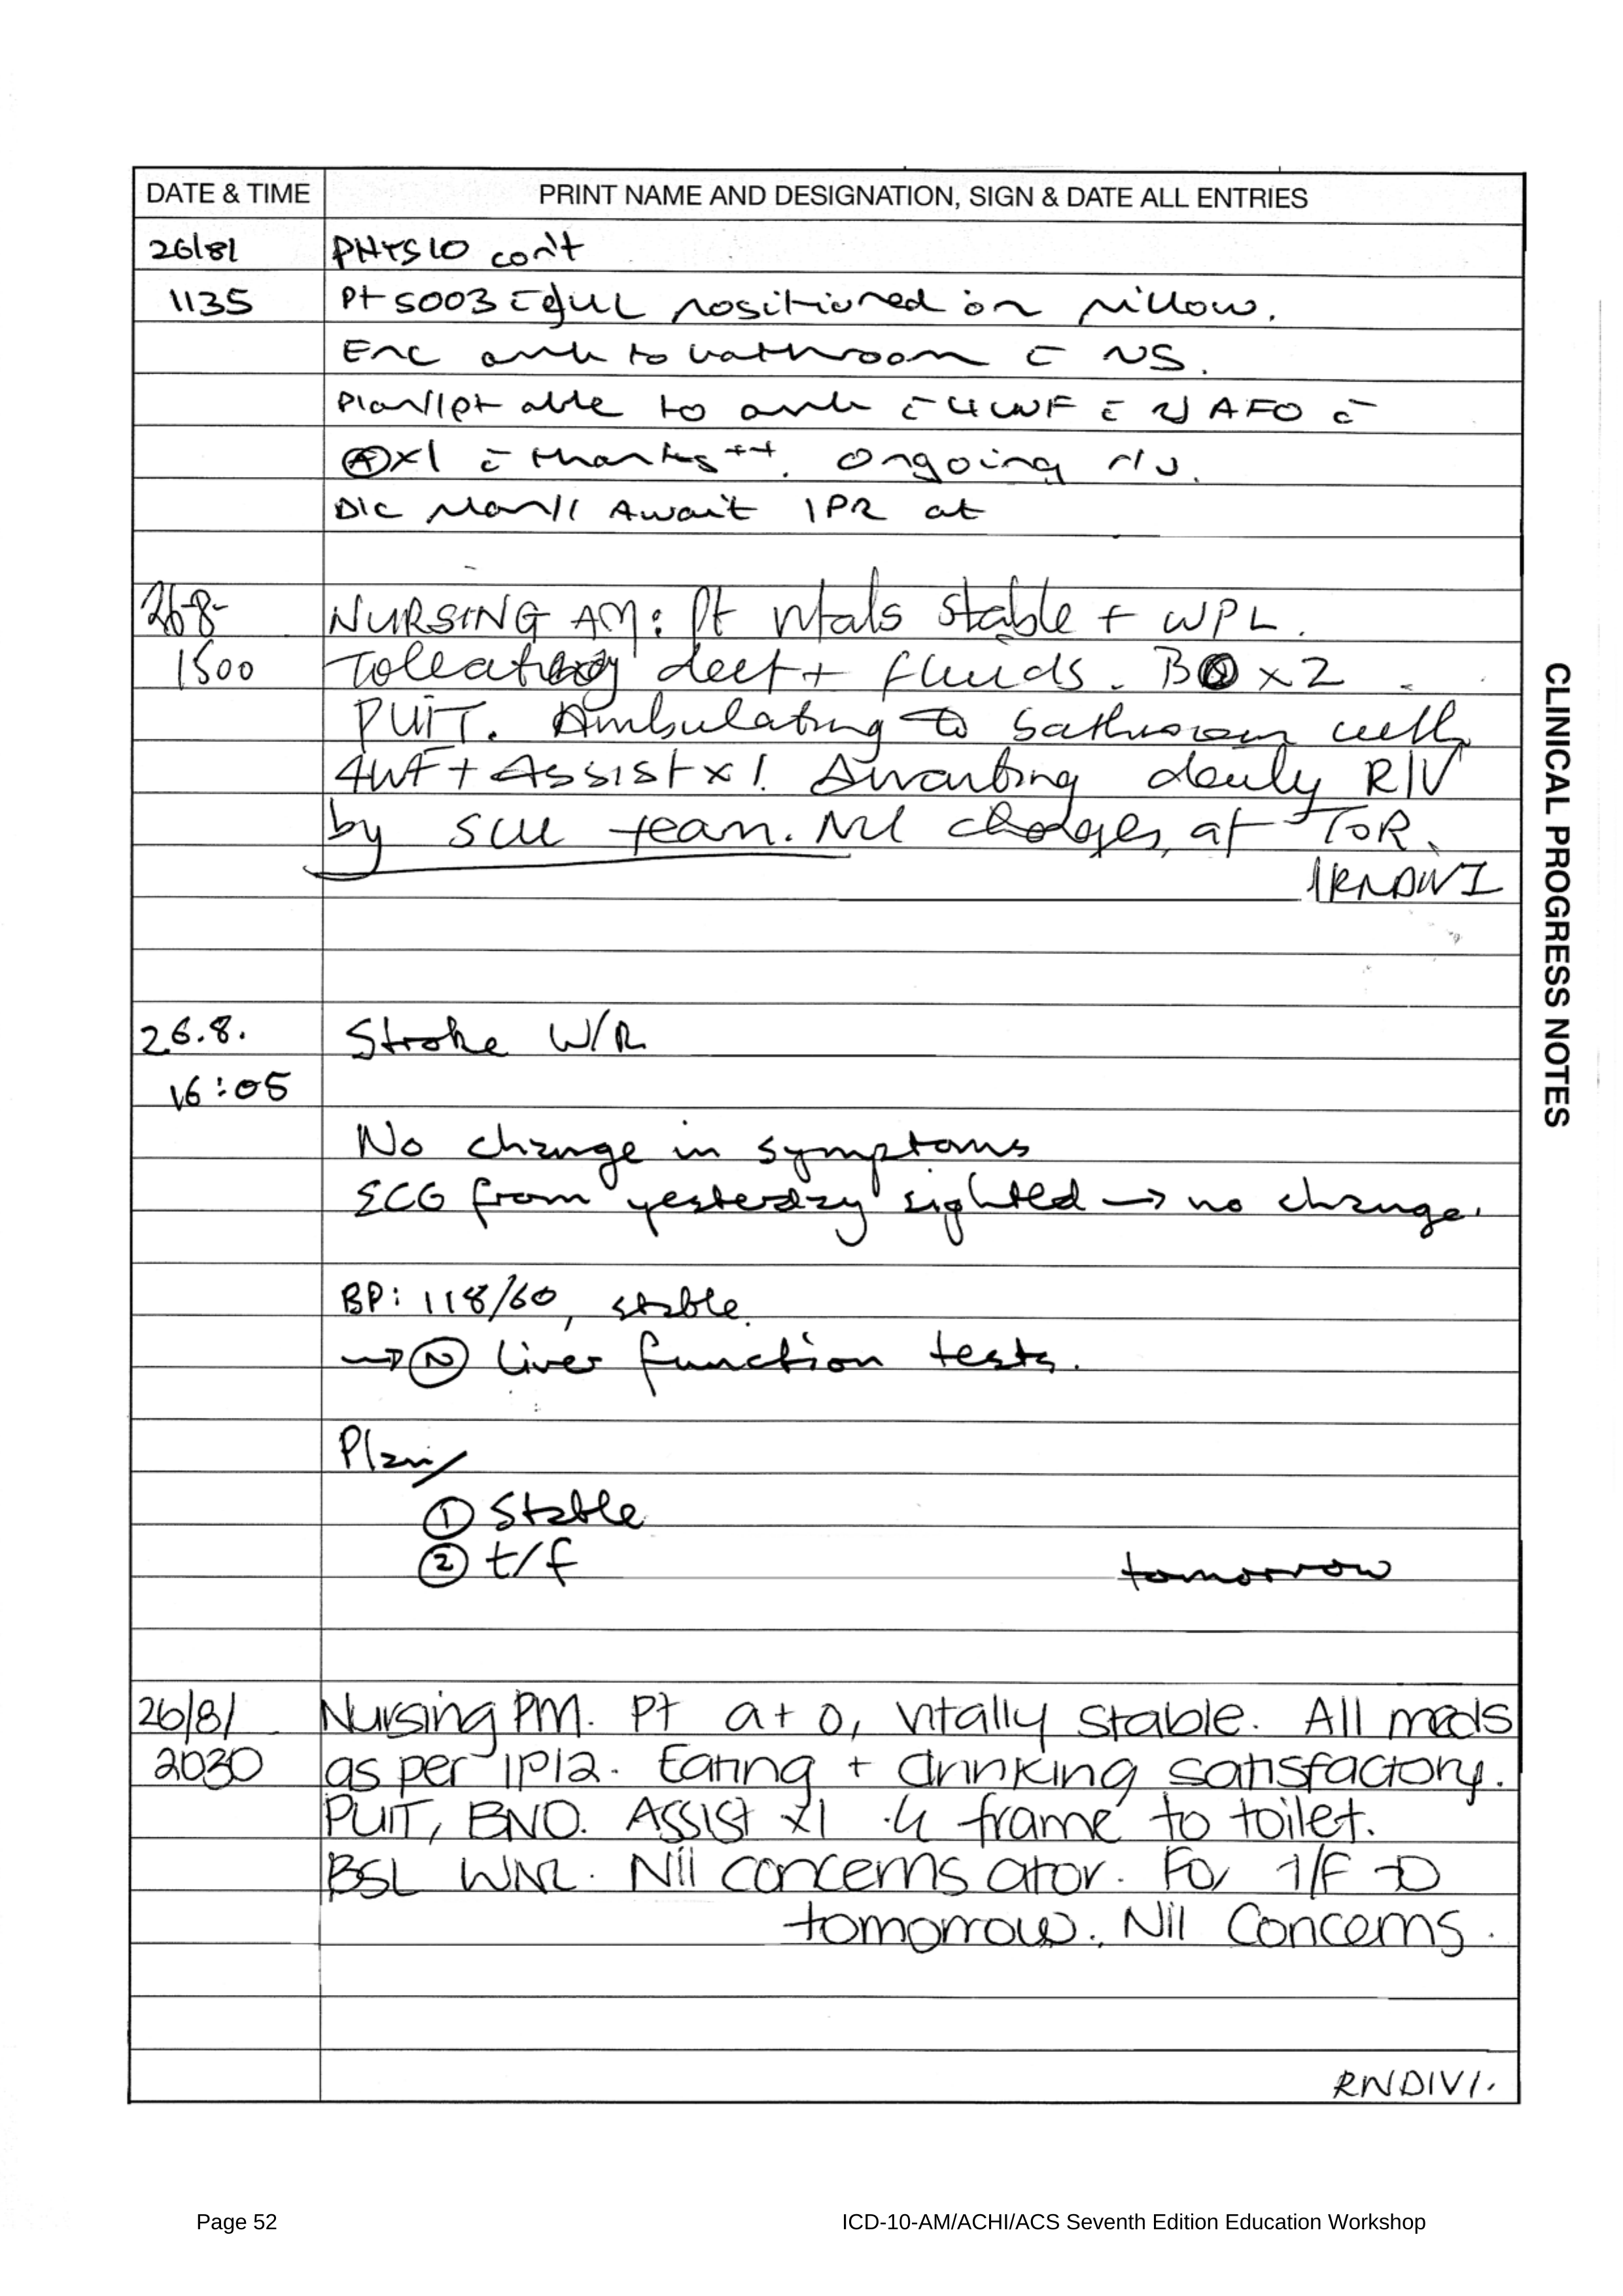 DATE & TIME PRINT NAME AND DESIGNATION, SIGN & DATE ALL ENTRIES
26/8/ PHYSIO con't
1135 Pt SOOB c̄ UL positioned on pillow.
Enc amb to bathroom c̄ NS.
Plan// pt able to amb c̄ 4WF c̄ AFO c̄
Ⓐx1 c̄ thanks++. Ongoing r/v.
D/c Plan// Await IPR at
26-8- NURSING AM: Pt vitals stable + WPL.
1500 Toleating deet + fluids. BO x 2.
PUIT. Ambulating to bathroom with
4WF + Assist x 1. Awaiting daily R/V
by SCU team. Nil changes at TOR.
RNDIV1
26.8. Stroke W/R
16:05
No change in symptoms
ECG from yesterday sighted → no change.
BP: 118/60, stable.
→ Ⓝ liver function tests.
Plan/
① Stable
② t/f tomorrow
26/8/ Nursing PM. Pt a+o, vitally stable. All meds
2030 as per IP12. Eating + drinking satisfactory.
PUIT, BNO. Assist x1 4 frame to toilet.
BSL WNL. Nil concerns ator. For T/F to
tomorrow. Nil Concerns.
RNDIV1.
CLINICAL PROGRESS NOTES
Page 52 ICD-10-AM/ACHI/ACS Seventh Edition Education Workshop